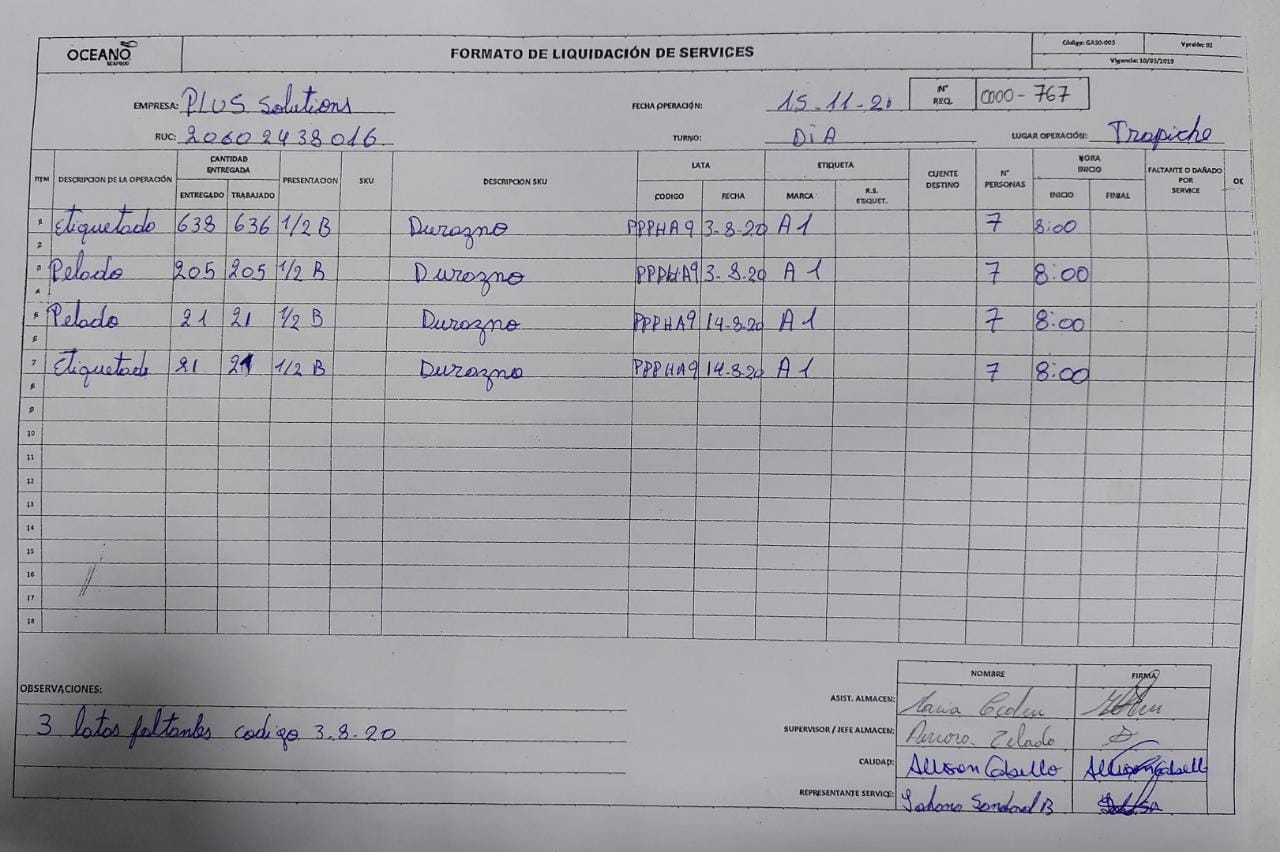 OCEANO
SEAFOOD
FORMATO DE LIQUIDACIÓN DE SERVICES
Código: GASO-005 Versión: 02
Vigencia: 10/05/2019
EMPRESA: PLUS Solutions FECHA OPERACIÓN: 15-11-20 N° REQ. 0000-767
RUC: 20602438016 TURNO: DIA LUGAR OPERACIÓN: Trapiche
ITEM DESCRIPCION DE LA OPERACIÓN CANTIDAD ENTREGADA PRESENTACION SKU DESCRIPCION SKU LATA ETIQUETA CLIENTE DESTINO N° PERSONAS HORA INICIO FALTANTE O DAÑADO POR SERVICE OK
ENTREGADO TRABAJADO CODIGO FECHA MARCA R.S. ETIQUET. INICIO FINIAL
1 Etiquetado 638 636 1/2 B Durazno PPPHA9 3-8-20 A1 7 8:00
2
3 Pelado 205 205 1/2 B Durazno PPPHA9 3-8-20 A1 7 8:00
4
5 Pelado 21 21 1/2 B Durazno PPPHA9 14-8-20 A1 7 8:00
6
7 Etiquetado 21 21 1/2 B Durazno PPPHA9 14-8-20 A1 7 8:00
8
9
10
11
12
13
14
15
16
17
18
NOMBRE FIRMA
OBSERVACIONES:
3 latas faltantes codigo 3-8-20
ASIST. ALMACEN:
SUPERVISOR / JEFE ALMACEN:
CALIDAD: Allison Cabello
REPRESENTANTE SERVICE: Sandoval B